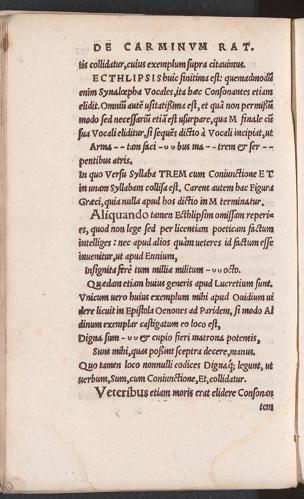 DE CARMINVM RAT.
tiis collidatur, cuius exemplum supra citauimus.
ECTHLIPSIS huic finitima est: quemadmodū
enim Synalœpha Vocales, ita hæc Consonantes etiam
elidit. Omniū autē usitatißima est, et quā non permißū
modo sed necessariū etiā est usurpare, qua M finale cū
sua Vocali eliditur, si sequēs dictio à Vocali incipiat, ut
Arma - - tam faci - υ υ bus ma - - trem & ser - -
pentibus atris.
In quo Versu Syllaba TREM cum Coniunctione ET
in unam Syllabam collisa est. Carent autem hac Figura
Græci, quia nulla apud hos dictio in M terminatur.
Aliquando tamen Ecthlipsim omissam reperi⸗
es, quod non lege sed per licentiam poeticam factum
intelliges: nec apud alios quàm ueteres id factum esse
inuenitur, ut apud Ennium,
Insignita ferè tum millia militum - υ υ octo.
Quædam etiam huius generis apud Lucretium sunt.
Vnicum uero huius exemplum mihi apud Ouidium ui
dere licuit in Epistola Oenones ad Paridem, si modo Al
dinum exemplar castigatum eo loco est,
Digna sum - υ υ & cupio fieri matrona potentis,
Sunt mihi, quas poßint sceptra decere, manus.
Quo tamen loco nonnulli codices Dignaq; legunt, ut
uerbum, Sum, cum Coniunctione, Et, collidatur.
Veteribus etiam moris erat elidere Consonan
tem